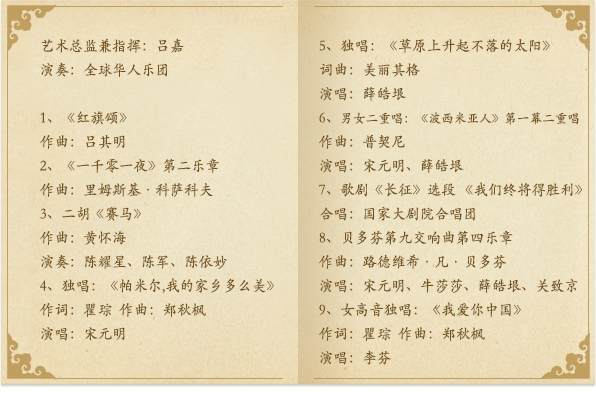 艺术总监兼指挥：吕嘉
演奏：全球华人乐团
1、《红旗颂》
作曲：吕其明
2、《一千零一夜》第二乐章
作曲：里姆斯基·科萨科夫
3、二胡《赛马》
作曲：黄怀海
演奏：陈耀星、陈军、陈依妙
4、独唱：《帕米尔,我的家乡多么美》
作词：瞿琮 作曲：郑秋枫
演唱：宋元明
5、独唱：《草原上升起不落的太阳》
词曲：美丽其格
演唱：薛皓垠
6、男女二重唱：《波西米亚人》第一幕二重唱
作曲：普契尼
演唱：宋元明、薛皓垠
7、歌剧《长征》选段《我们终将得胜利》
合唱：国家大剧院合唱团
8、贝多芬第九交响曲第四乐章
作曲：路德维希·凡·贝多芬
演唱：宋元明、牛莎莎、薛皓垠、关致京
9、女高音独唱：《我爱你中国》
作词：瞿琮 作曲：郑秋枫
演唱：李芬